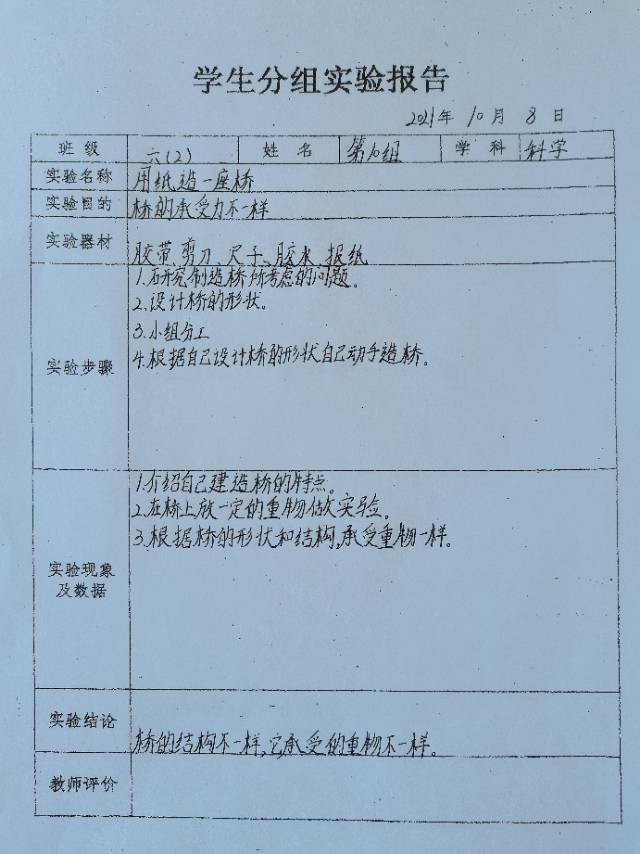 学生分组实验报告
2021年 10月 8日
班级 六(2) 姓名 第10组 学科 科学
实验名称 用纸造一座桥
实验目的 桥的承受力不一样
实验器材 胶带、剪刀、尺子、胶水、报纸
实验步骤
1.研究制造桥所考虑的问题。
2.设计桥的形状。
3.小组分工
4.根据自己设计桥的形状自己动手造桥。
实验现象
及数据
1.介绍自己建造桥的特点。
2.在桥上放一定的重物做实验。
3.根据桥的形状和结构,承受重物一样。
实验结论 桥的结构不一样,它承受的重物不一样。
教师评价